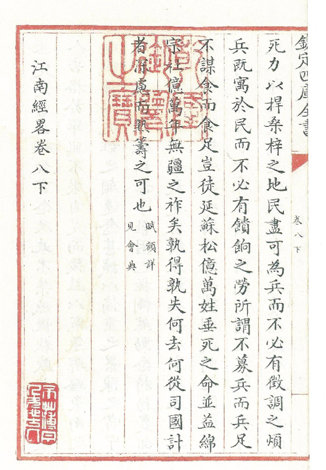 欽定四庫全書
卷八下
死力以捍桑梓之地民盡可為兵而不必有徵調之煩
兵既寓於民而不必有饋餉之勞所謂不募兵而兵足
不謀食而食足豈徒延蘇松億萬姓垂死之命並益綿
宗社億萬年無疆之祚矣孰得孰失何去何從司國計
者深慮而熟籌之可也
賦額詳
見會典
江南經畧卷八下
之寶